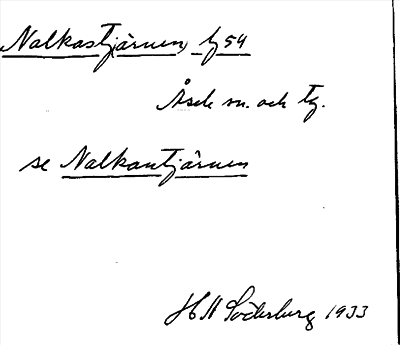 Nalkastjärnen, lj 54
Åsele sn. och tg.
se Nalkantjärnen
H N Söderberg 1933